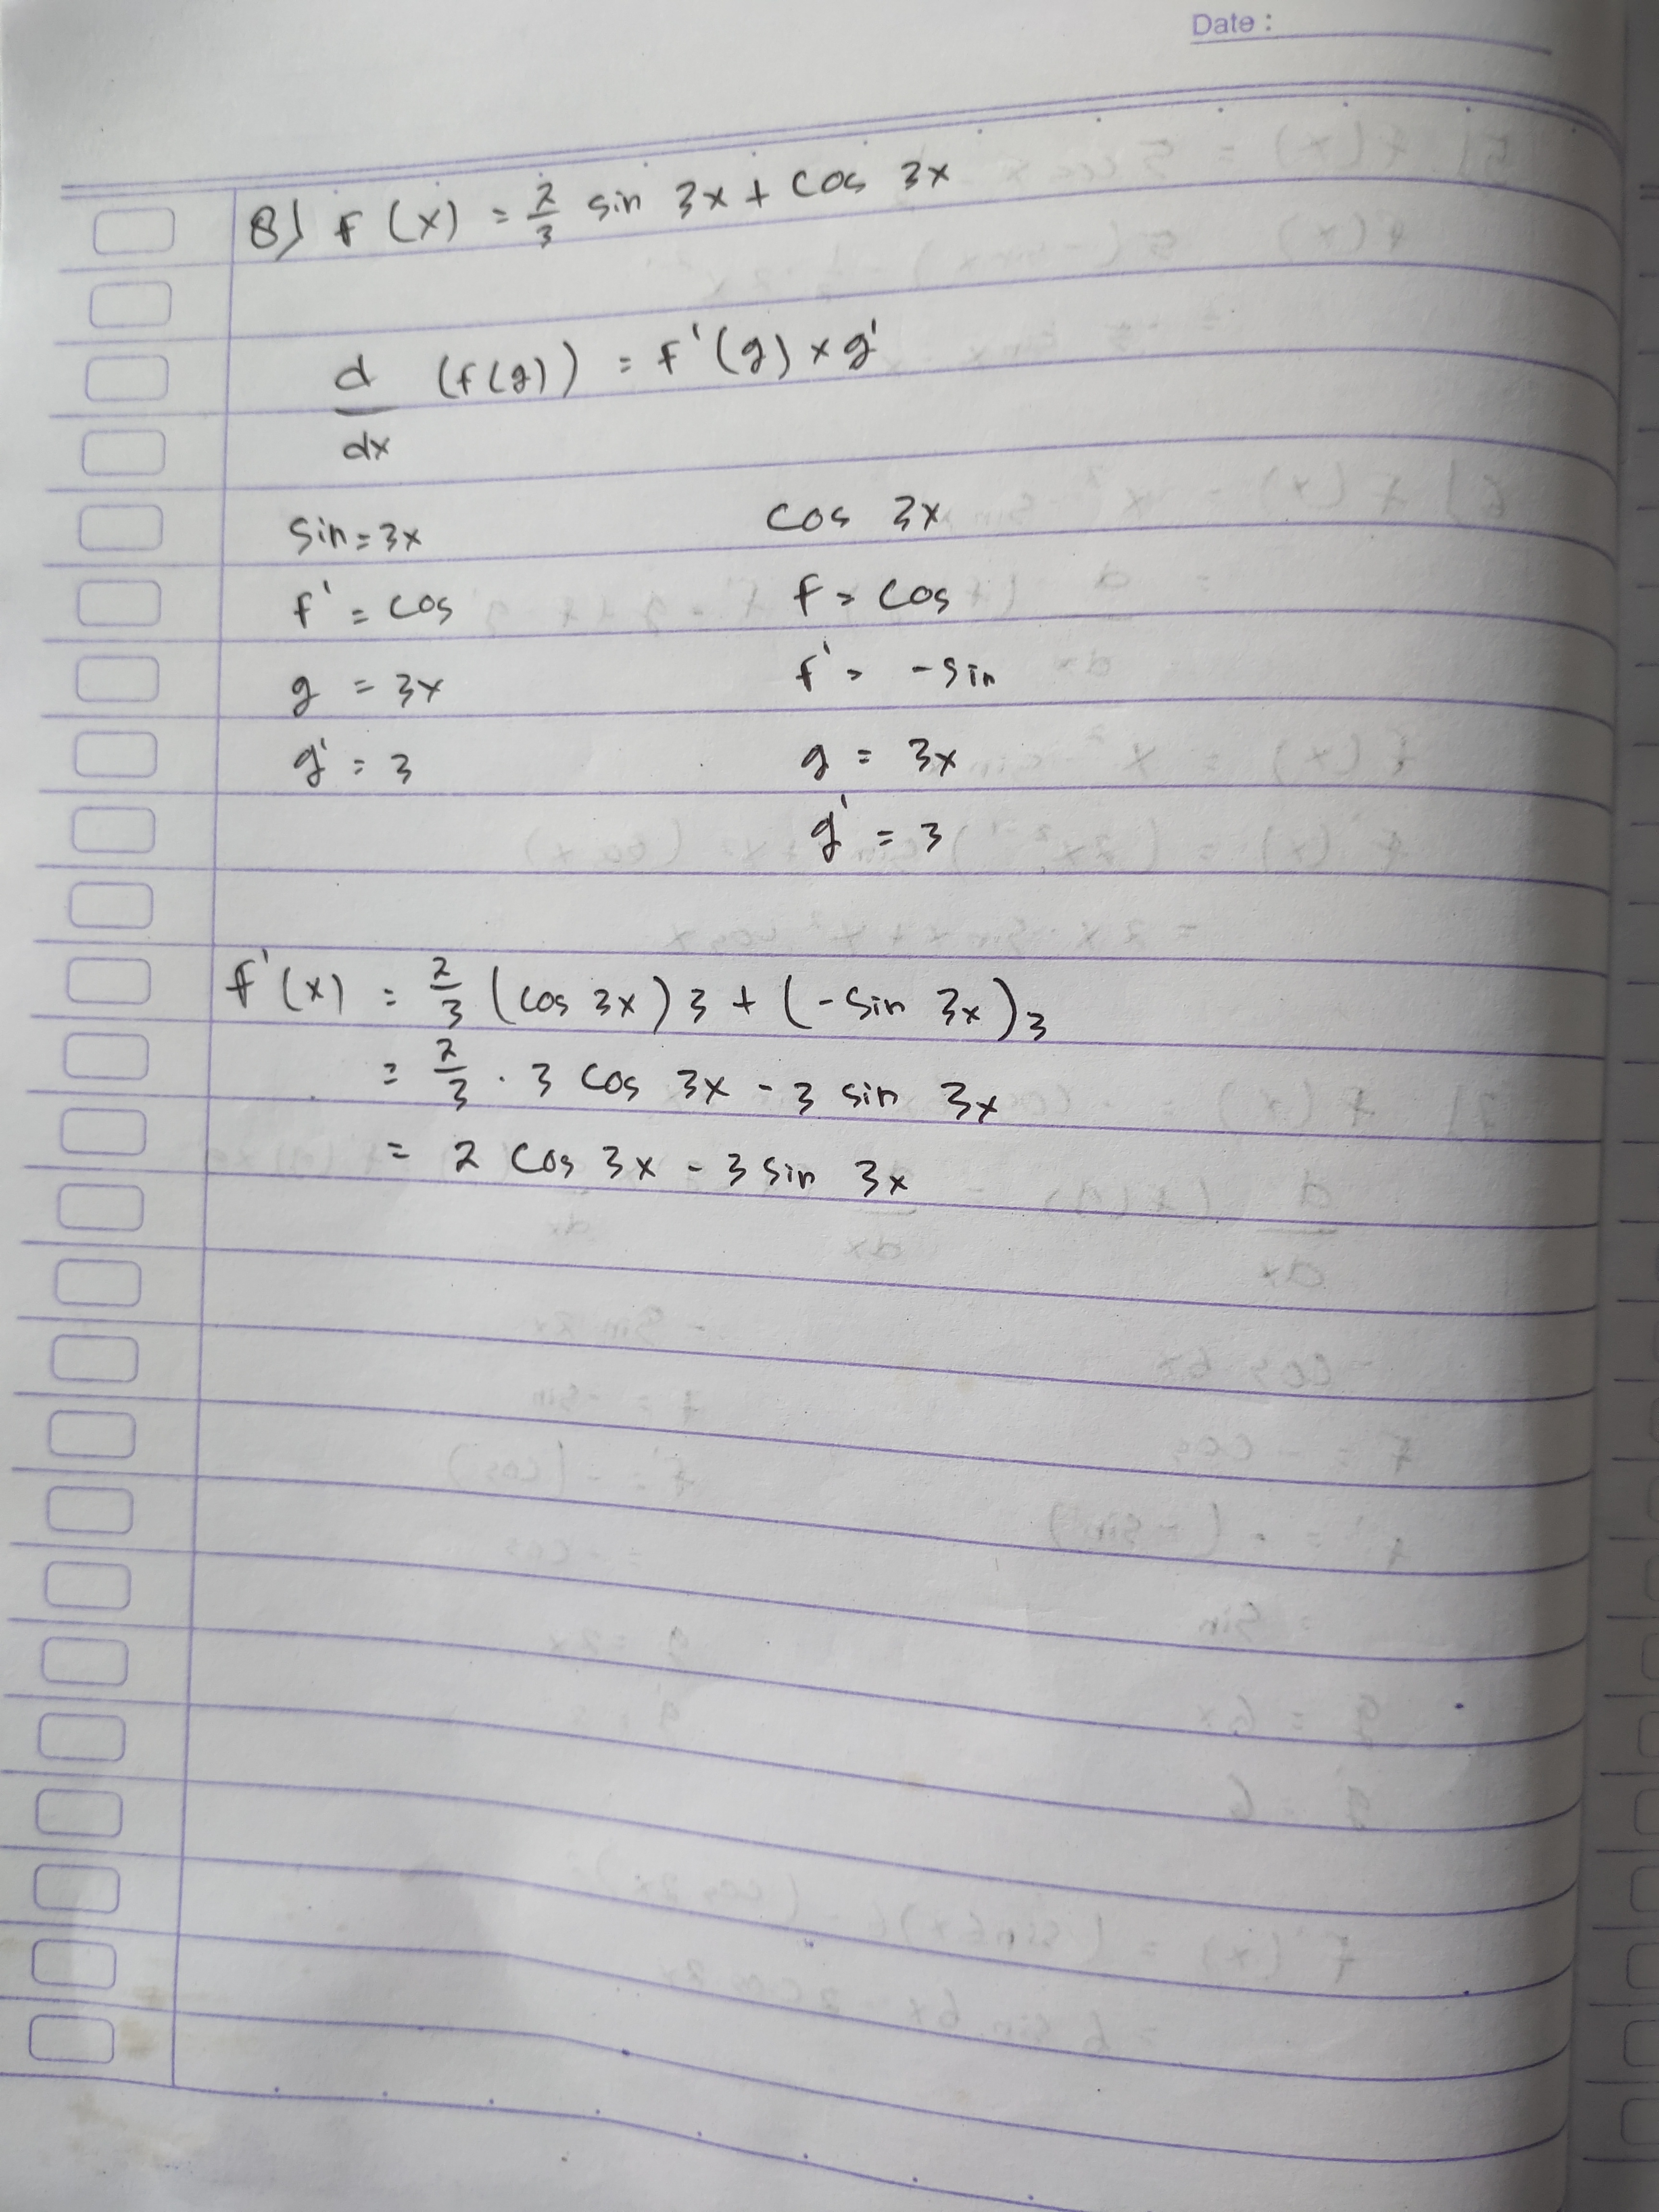 Date :
8) f (x) = 2/3 sin 3x + cos 3x
d/dx (f(g)) = f'(g) x g'
sin = 3x
f' = cos
g = 3x
g' = 3
cos 3x
f = cos
f' = -sin
g = 3x
g' = 3
f'(x) = 2/3 (cos 3x) 3 + (-sin 3x) 3
= 2/3 . 3 cos 3x - 3 sin 3x
= 2 cos 3x - 3 sin 3x